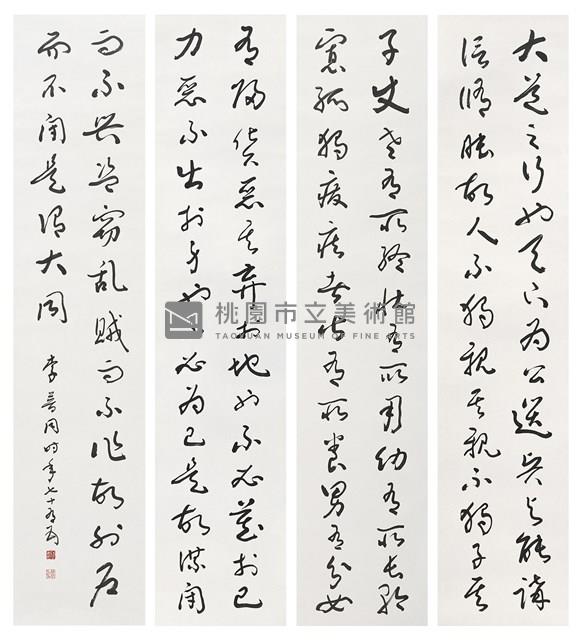 大道之行也天下為公選賢與能講
信脩睦故人不獨親其親不獨子其
子使老有所終壯有所用幼有所長矜
寡孤獨廢疾者皆有所養男有分女
有歸貨惡其棄於地也不必藏於己
力惡不出於身也不必為己是故謀閉
而不興盜竊乱賊而不作故外戶
而不閉是謂大同
李普同時年七十有
桃園市立美術館
TAOYUAN MUSEUM OF FINE ARTS